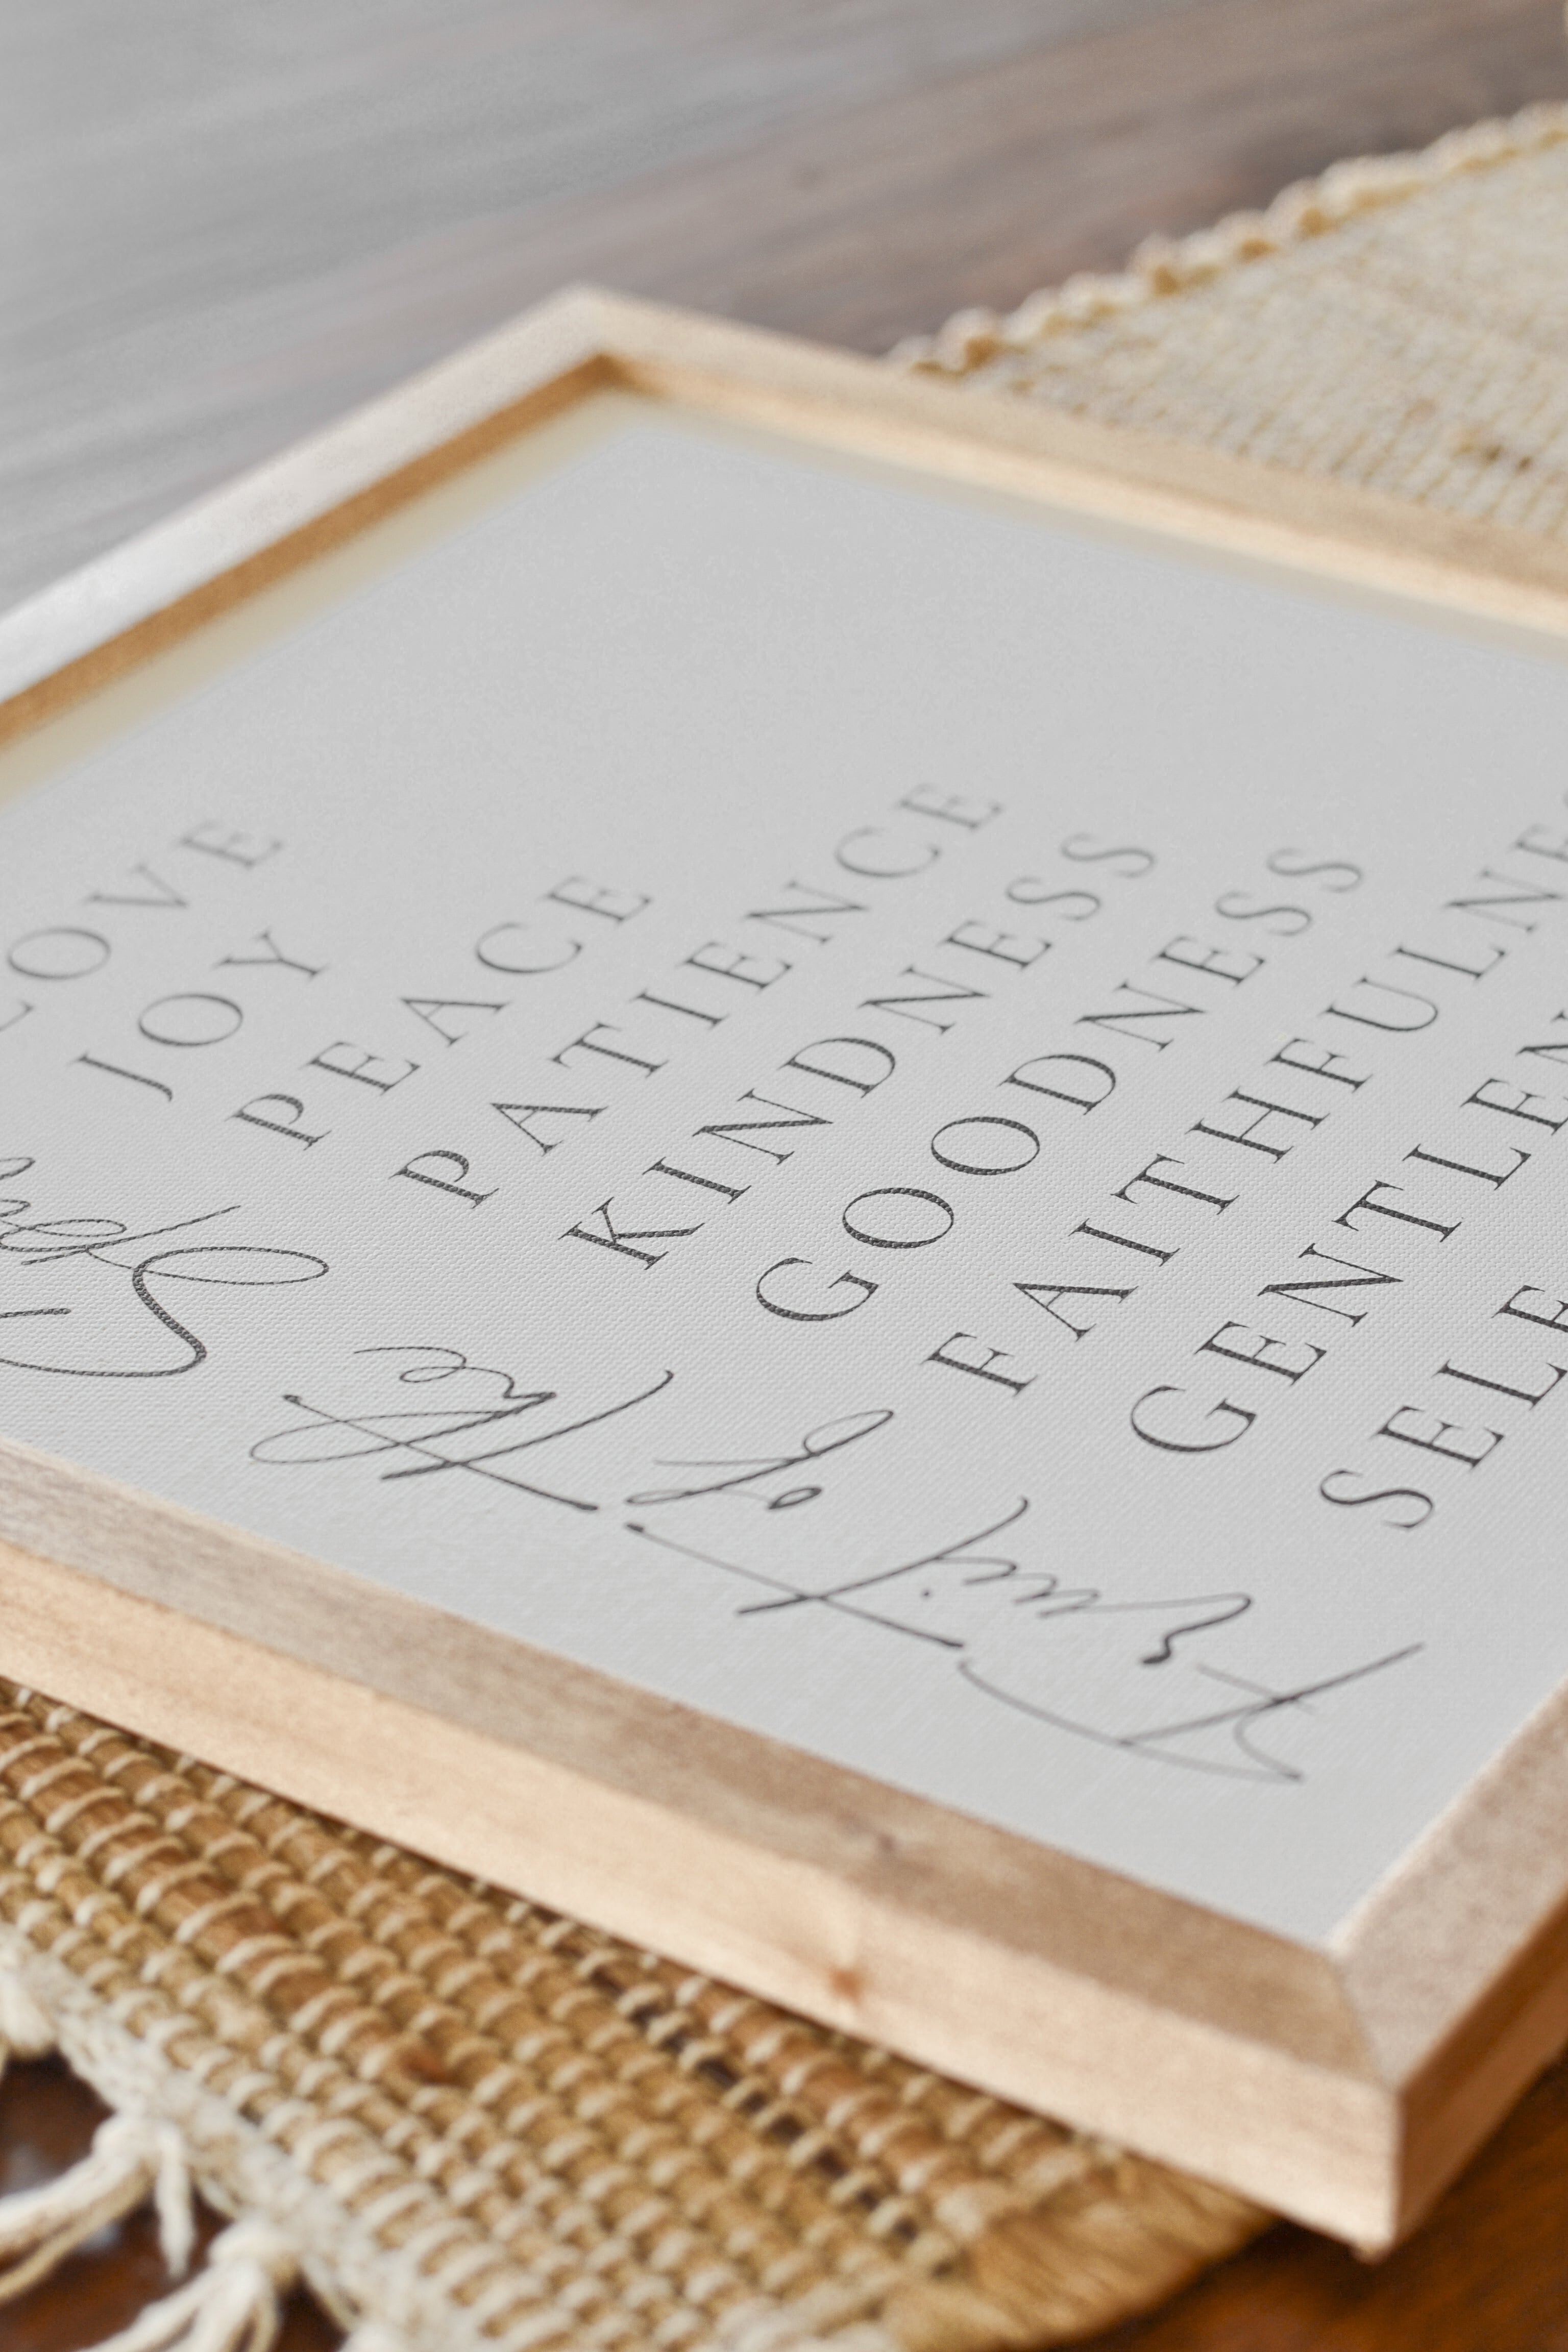 Fruit of the
LOVE
JOY
PEACE
PATIENCE
KINDNESS
GOODNESS
FAITHFULNE
GENTLEN
SELF